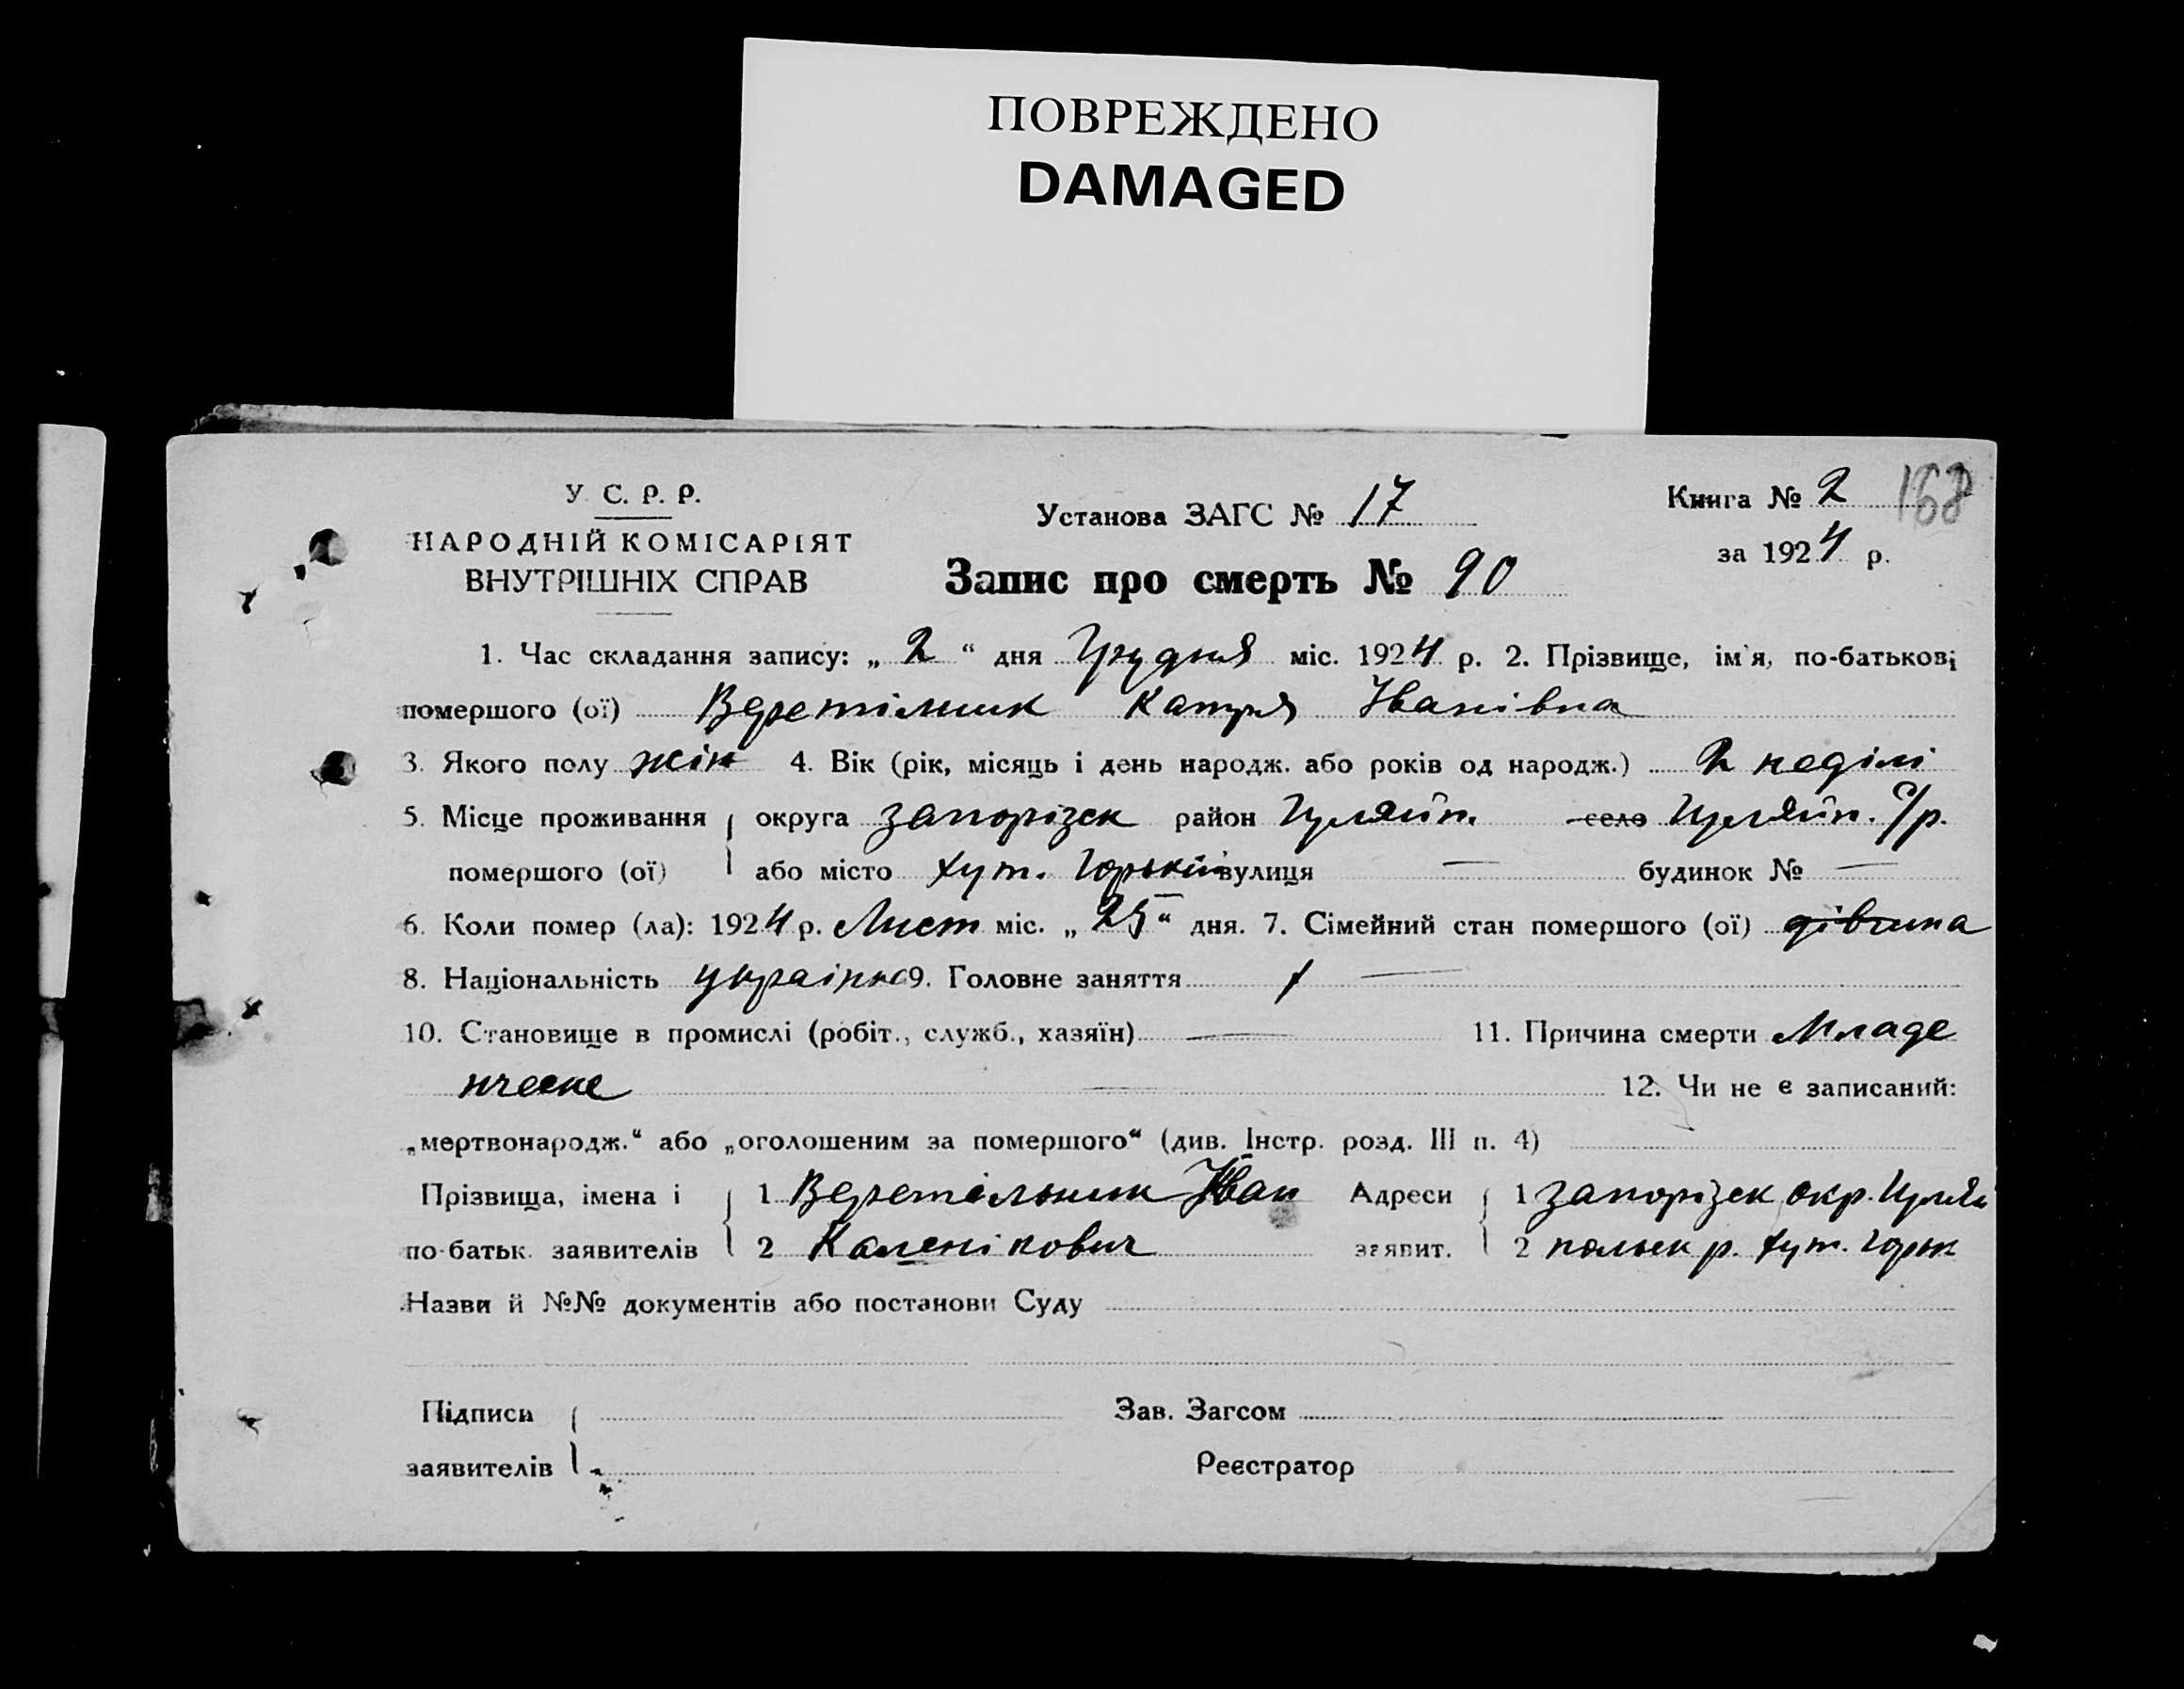 ПОВРЕЖДЕНО
DAMAGED
У С. Р. Р.
НАРОДНІЙ КОМІСАРІЯТ
ВНУТРІШНІХ СПРАВ
Установа ЗАГС № 17
Запис про смерть № 90
Книга № 2 168
за 1924 р.
1. Час складання запису: „ 2 “ дня Грудня міс. 1924 р. 2. Прізвище, ім'я, по-батькові
помершого (ої) Веретільник Катря Іванівна
3. Якого полу жін 4. Вік (рік, місяць і день народж. або років од народж.) 2 неділі
5. Місце проживання округа запорізск район Гуляйп. село Гуляйп. с/р.
помершого (ої) або місто хут. Горький вулиця — будинок № —
6. Коли помер (ла): 1924 р. Лист міс. „ 25 “ дня. 7. Сімейний стан помершого (ої) дівчина
8. Національність україн 9. Головне заняття —
10. Становище в промислі (робіт., служб., хазяїн) — 11. Причина смерти Младе
нческе 12. Чи не є записаний:
„мертвонародж.“ або „оголошеним за помершого“ (див. Інстр. розд. III п. 4)
Прізвища, імена і 1 Веретельник Іван Адреси 1 запорізск окр. Гуляй
по-батьк. заявителів 2 Каленікович заявит. 2 польск р. хут. Горьк
Назви й №№ документів або постанови Суду
Підписи Зав. Загсом
заявителів Реєстратор